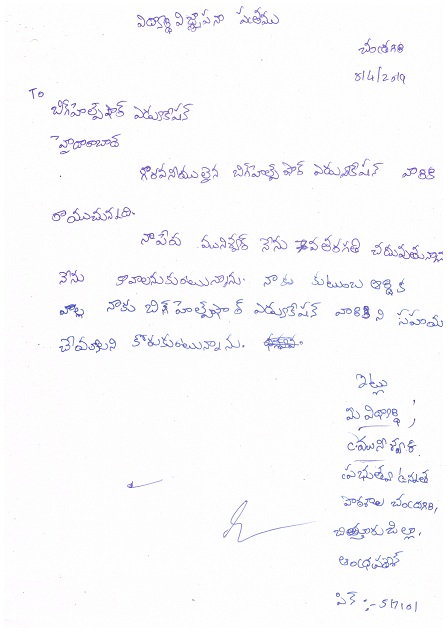 విద్యార్థి విజ్ఞాపనా పత్రము
చంద్రగిరి
8/4/2019
To
బిగ్‌హెల్ప్‌ఫర్ ఎడ్యుకేషన్
హైదరాబాద్
గౌరవనీయులైన బిగ్‌హెల్ప్ ఫర్ ఎడ్యుకేషన్ వారికి
రాయునది.
నాపేరు మునిశ్వర్ నేను వతరగతి చదువుతున్నాను
నేను కావాలనుకుంటున్నాను. నాకు కుటుంబ ఆర్థిక
వల్ల నాకు బిగ్‌హెల్ప్‌ఫర్ ఎడ్యుకేషన్ వారికి ని సహాయ
చేయాలని కోరుకుంటున్నాను.
ఇట్లు
మీ విద్యార్థి,
మునిశ్వర్.
ప్రభుత్వ ఉన్నత
పాఠశాల చంద్రగిరి,
చిత్తూరు జిల్లా,
ఆంధ్రప్రదేశ్
పిన్ :- 517101